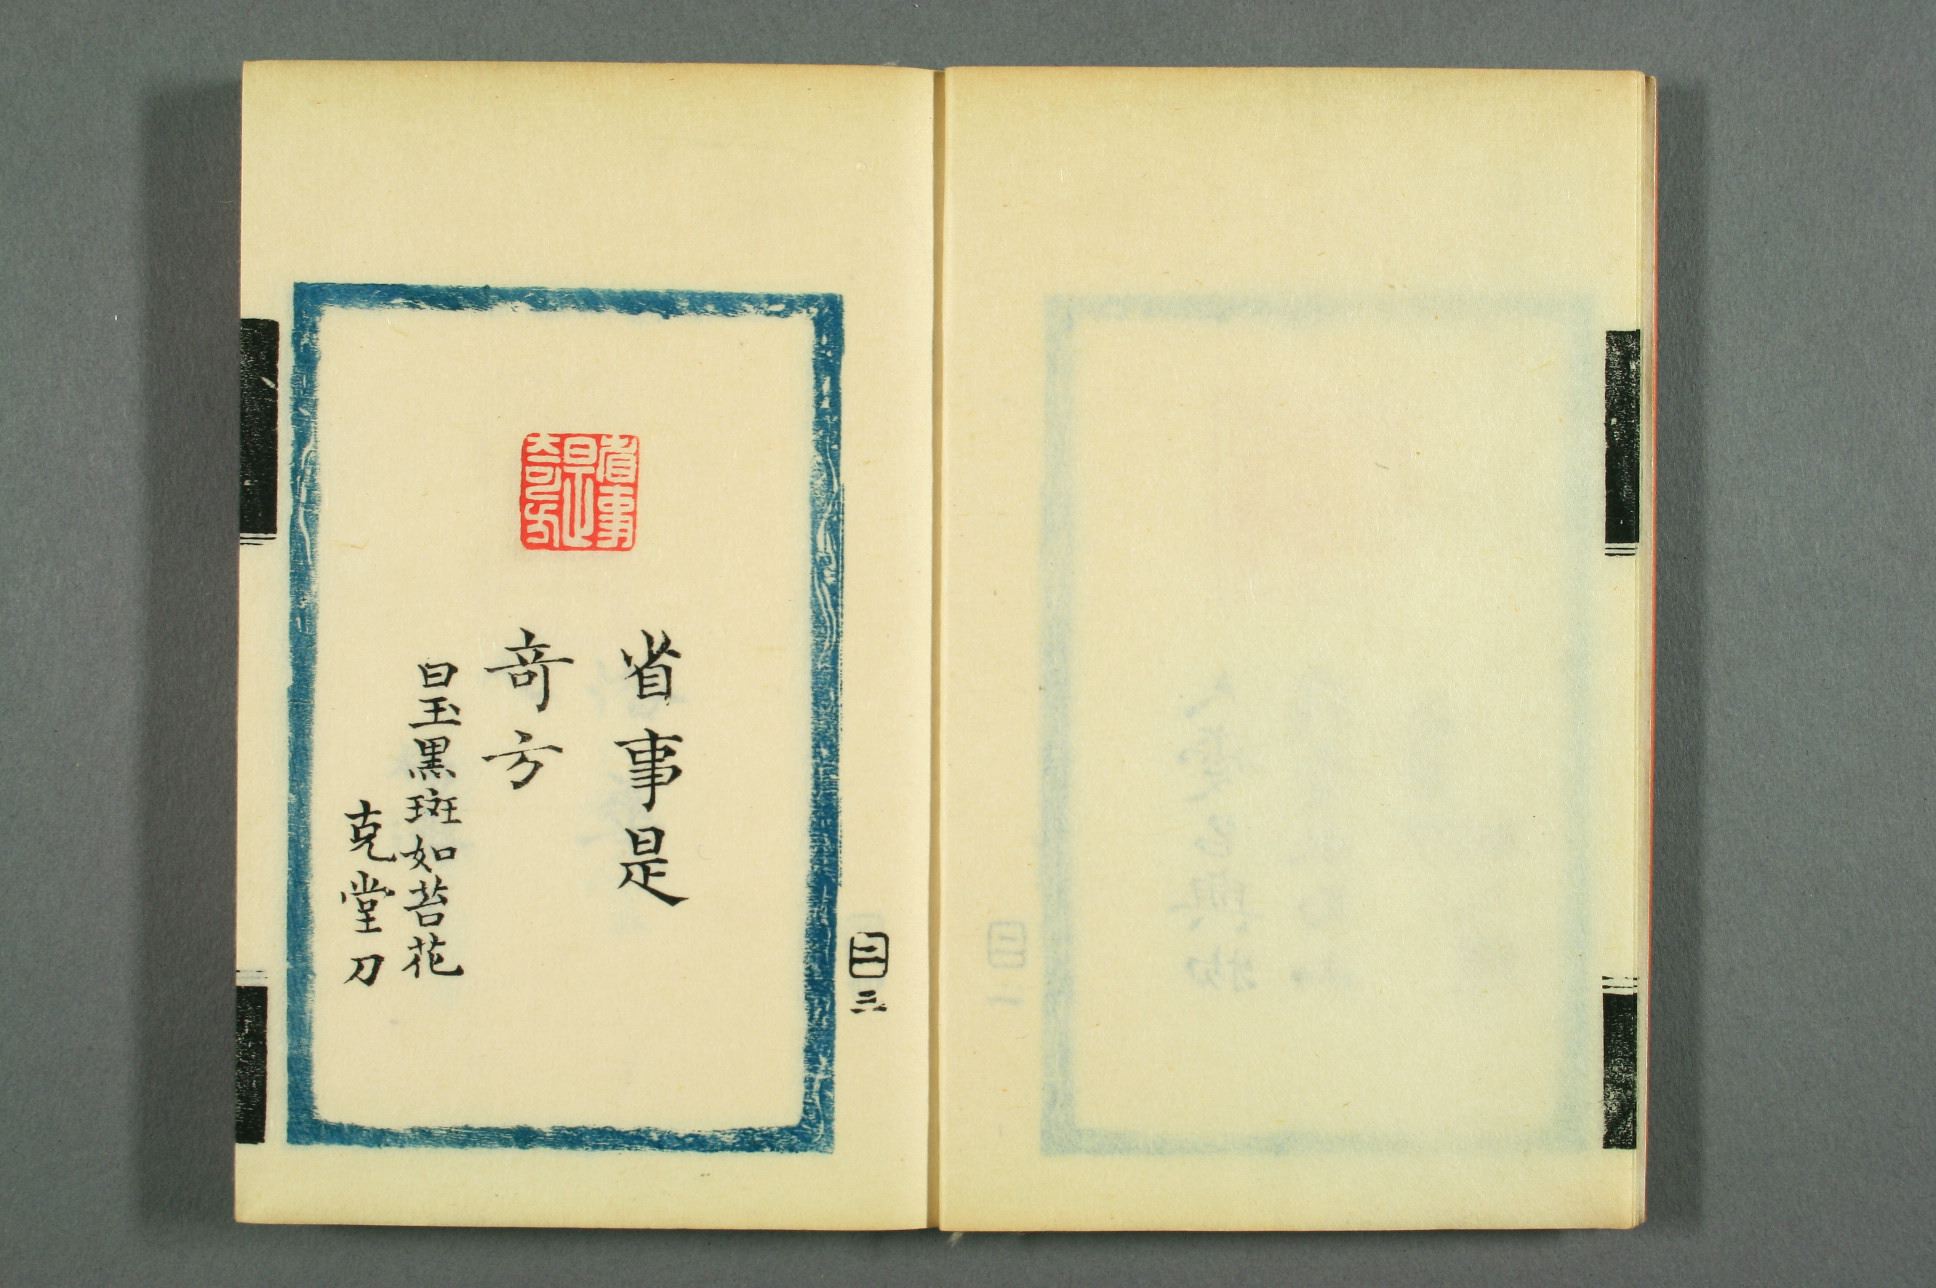 省事是
奇方
省事是
竒方
白玉黒斑如苔花
克堂刀
三